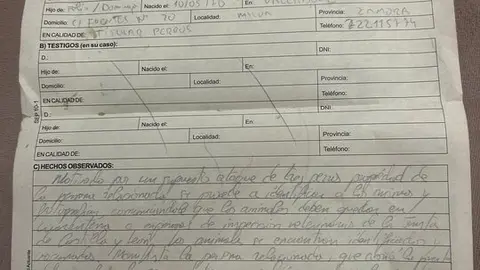 Hijo de: Félix / Nacido el: 10/05/1970 En:
Domicilio: C/ FUENTES Nº 70 Localidad: Provincia: ZAMORA
EN CALIDAD DE: TITULAR PERROS Teléfono:
B) TESTIGOS (en su caso):
D.: DNI:
Hijo de: Nacido el: En:
Domicilio: Localidad: Provincia:
EN CALIDAD DE: Teléfono:
D.: DNI:
Hijo de: Nacido el: En:
Domicilio: Localidad: Provincia:
EN CALIDAD DE: Teléfono:
C) HECHOS OBSERVADOS:
Motivado por un supuesto ataque de tres perros propiedad de
la persona relacionada se procede a identificar a los mismos y
comunicándole que los animales deben quedar en
cuarentena a expensas de inspección veterinaria de la Junta
de Castilla y León, los animales se encuentran identificados y
vacunados. Manifiesta la persona relacionada, que